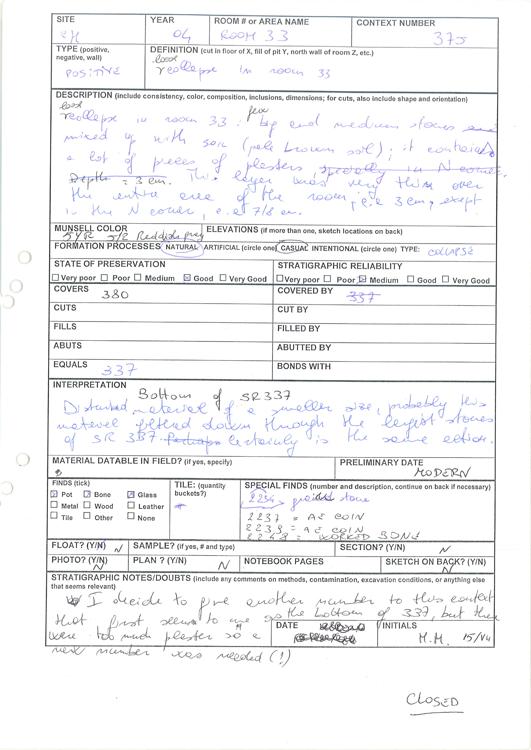 SITE YEAR ROOM # or AREA NAME CONTEXT NUMBER
04 ROOM 33 375
TYPE (positive, negative, wall) DEFINITION (cut in floor of X, fill of pit Y, north wall of room Z, etc.)
POSITIVE collapse in room 33
DESCRIPTION (include consistency, color, composition, inclusions, dimensions; for cuts, also include shape and orientation)
collapse in room 33. few big and medium stones
mixed up with soil (pale brown soil); it contains
a lot of pieces of plasters, specially in N corner.
Depth = 3 cm. This layer was very thin over
the entire area of the room, 3 cm, except
in the N corner, 7/8 cm.
MUNSELL COLOR ELEVATIONS (if more than one, sketch locations on back)
5YR 5/2 Reddish gray
FORMATION PROCESSES NATURAL ARTIFICIAL (circle one) CASUAL INTENTIONAL (circle one) TYPE: COLLAPSE
STATE OF PRESERVATION STRATIGRAPHIC RELIABILITY
Very poor Poor Medium Good Very Good Very poor Poor Medium Good Very Good
COVERS 380 COVERED BY 337
CUTS CUT BY
FILLS FILLED BY
ABUTS ABUTTED BY
EQUALS 337 BONDS WITH
INTERPRETATION
Bottom of SR337
Disturbed material of a smaller size, probably this
material filtered down through the largest stones
of SR 337. Perhaps certainly is the same action.
MATERIAL DATABLE IN FIELD? (if yes, specify) PRELIMINARY DATE
MODERN
FINDS (tick) TILE: (quantity buckets?) SPECIAL FINDS (number and description, continue on back if necessary)
Pot Bone Glass
Metal Wood Leather
Tile Other None
2254, ground stone
2237 = AE COIN
2238 = AE COIN
2248 = WORKED BONE
FLOAT? (Y/N) N SAMPLE? (if yes, # and type) SECTION? (Y/N) N
PHOTO? (Y/N) N PLAN? (Y/N) N NOTEBOOK PAGES SKETCH ON BACK? (Y/N) N
STRATIGRAPHIC NOTES/DOUBTS (include any comments on methods, contamination, excavation conditions, or anything else that seems relevant)
I decide to give another number to this context
that first seems to me as the bottom of 337, but there
were too much plaster so a
new number was needed (!)
DATE INITIALS
M.M. 15/VII
CLOSED